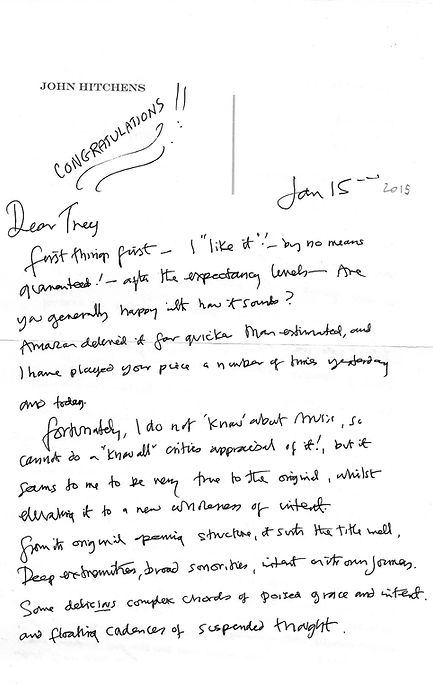 JOHN HITCHENS
CONGRATULATIONS!!
Jan 15 2015
Dear Trey
first things first – I "like it"! – by no means
guaranteed! – after the expectancy levels – Are
you generally happy with how it sounds?
Amazon delivered it far quicker than estimated, and
I have played your piece a number of times yesterday
and today.
Fortunately, I do not 'know' about music, so
cannot do a "know all" critics appraisal of it!, but it
seems to me to be very true to the original, whilst
elevating it to a new wholeness of intent.
From its original structure, it suits the title well,
Deep extremities, broad sonorities, intent
Some delicious complex chords of poised grace and intent.
and floating cadences of suspended thought.